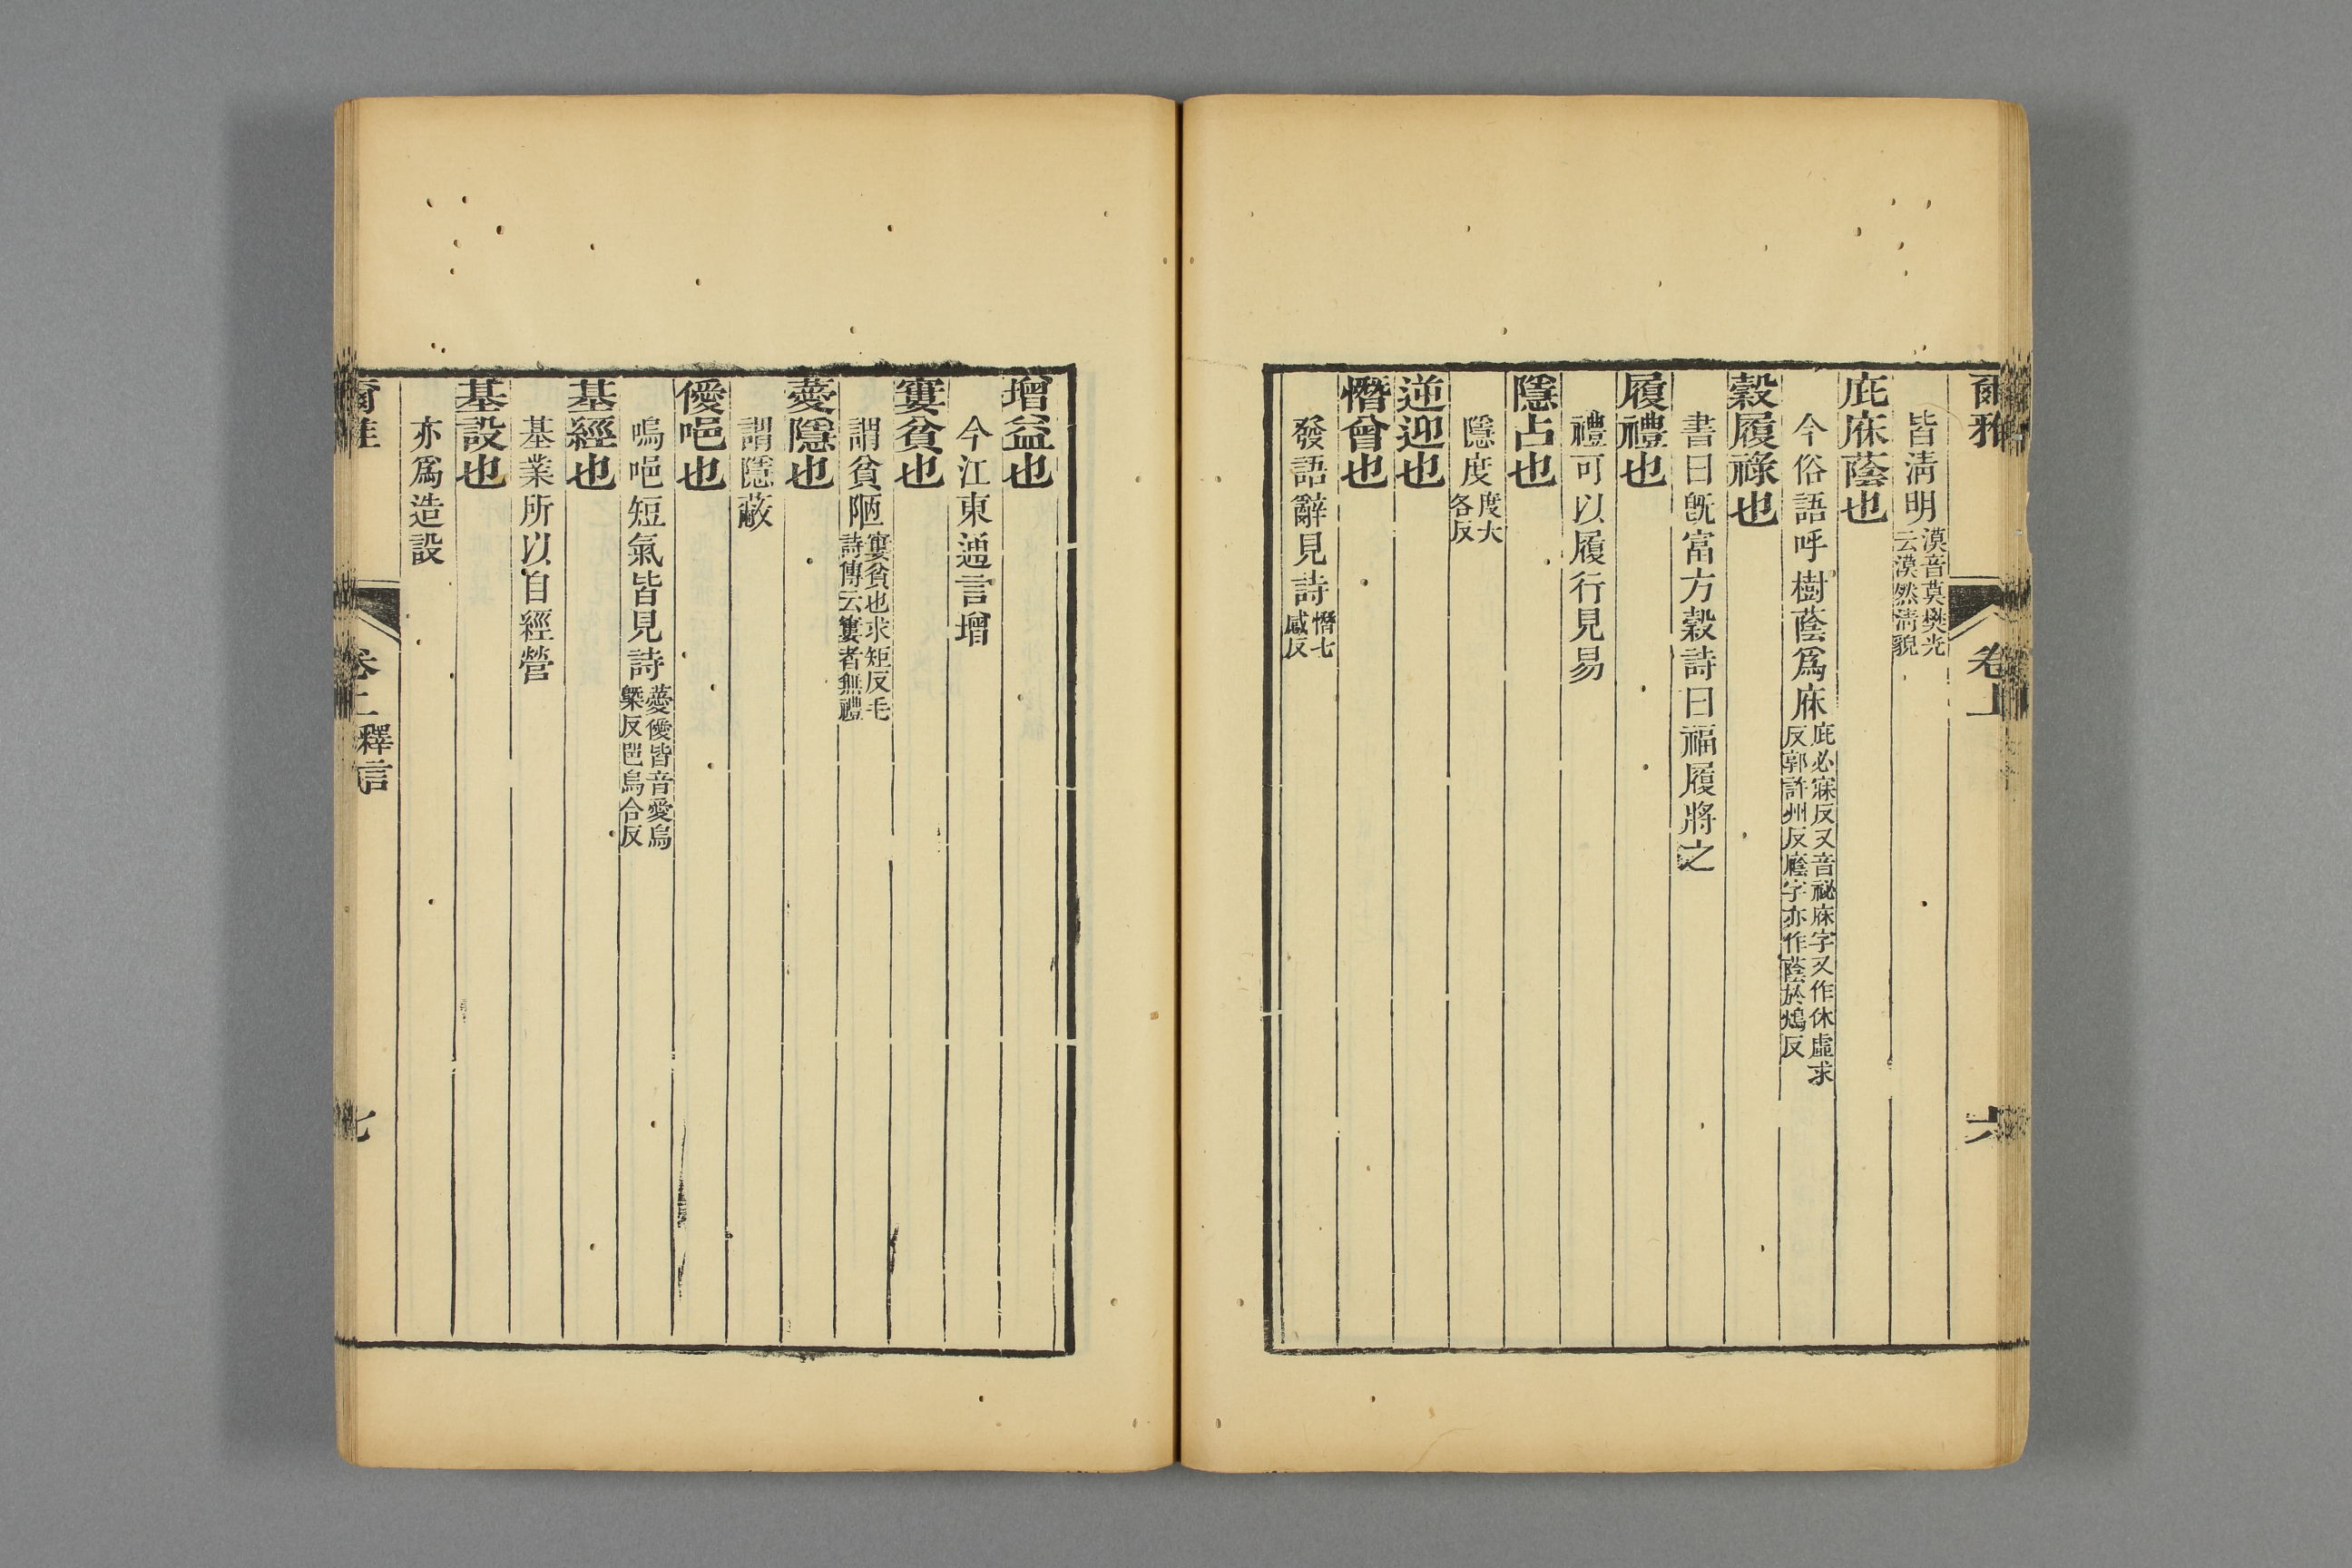 爾雅 卷上 六
皆淸明漠音莫樊光云漠然淸貌
庇庥蔭也
今俗語呼樹蔭爲庥庇必寐反又音祕庥字又作休虛求反郭許州反廕字亦作蔭於鴆反
穀履祿也
書曰旣富方穀詩曰福履將之
履禮也
禮可以履行見易
隱占也
隱度度大各反
逆迎也
憯曾也
發語辭見詩憯七感反
增益也
今江東通言增
窶貧也
謂貧陋窶貧也求矩反毛詩傳云窶者無禮
薆隱也
謂隱蔽
僾唈也
嗚唈短氣皆見詩薆僾皆音愛烏槩反唈烏合反
基經也
基業所以自經營
基設也
亦爲造設
爾雅 卷上 釋言 七